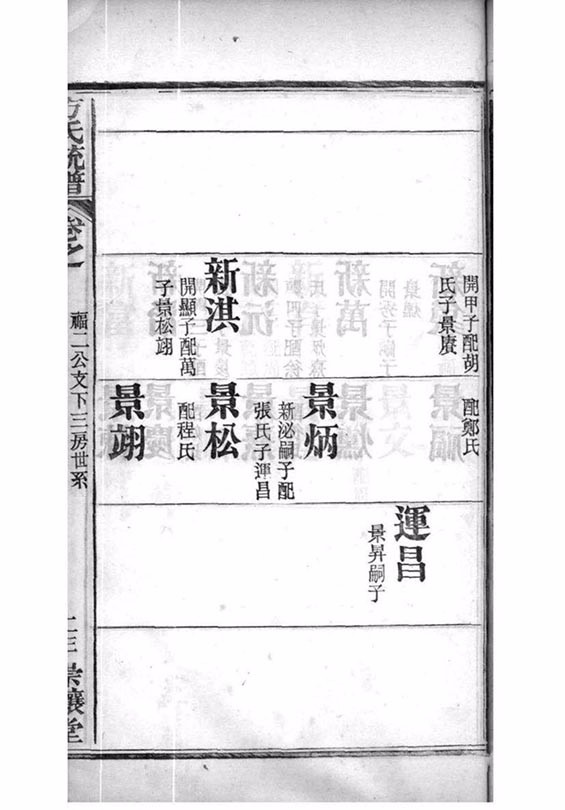 開甲子配胡
氏子景賡
新淇
開顯子配萬
子景松翊
配鄭氏
景炳
新泌嗣子配
張氏子運昌
景松
配程氏
景翊
運昌
景昇嗣子
方氏統譜
卷之
福二公支下三房世系
崇讓堂